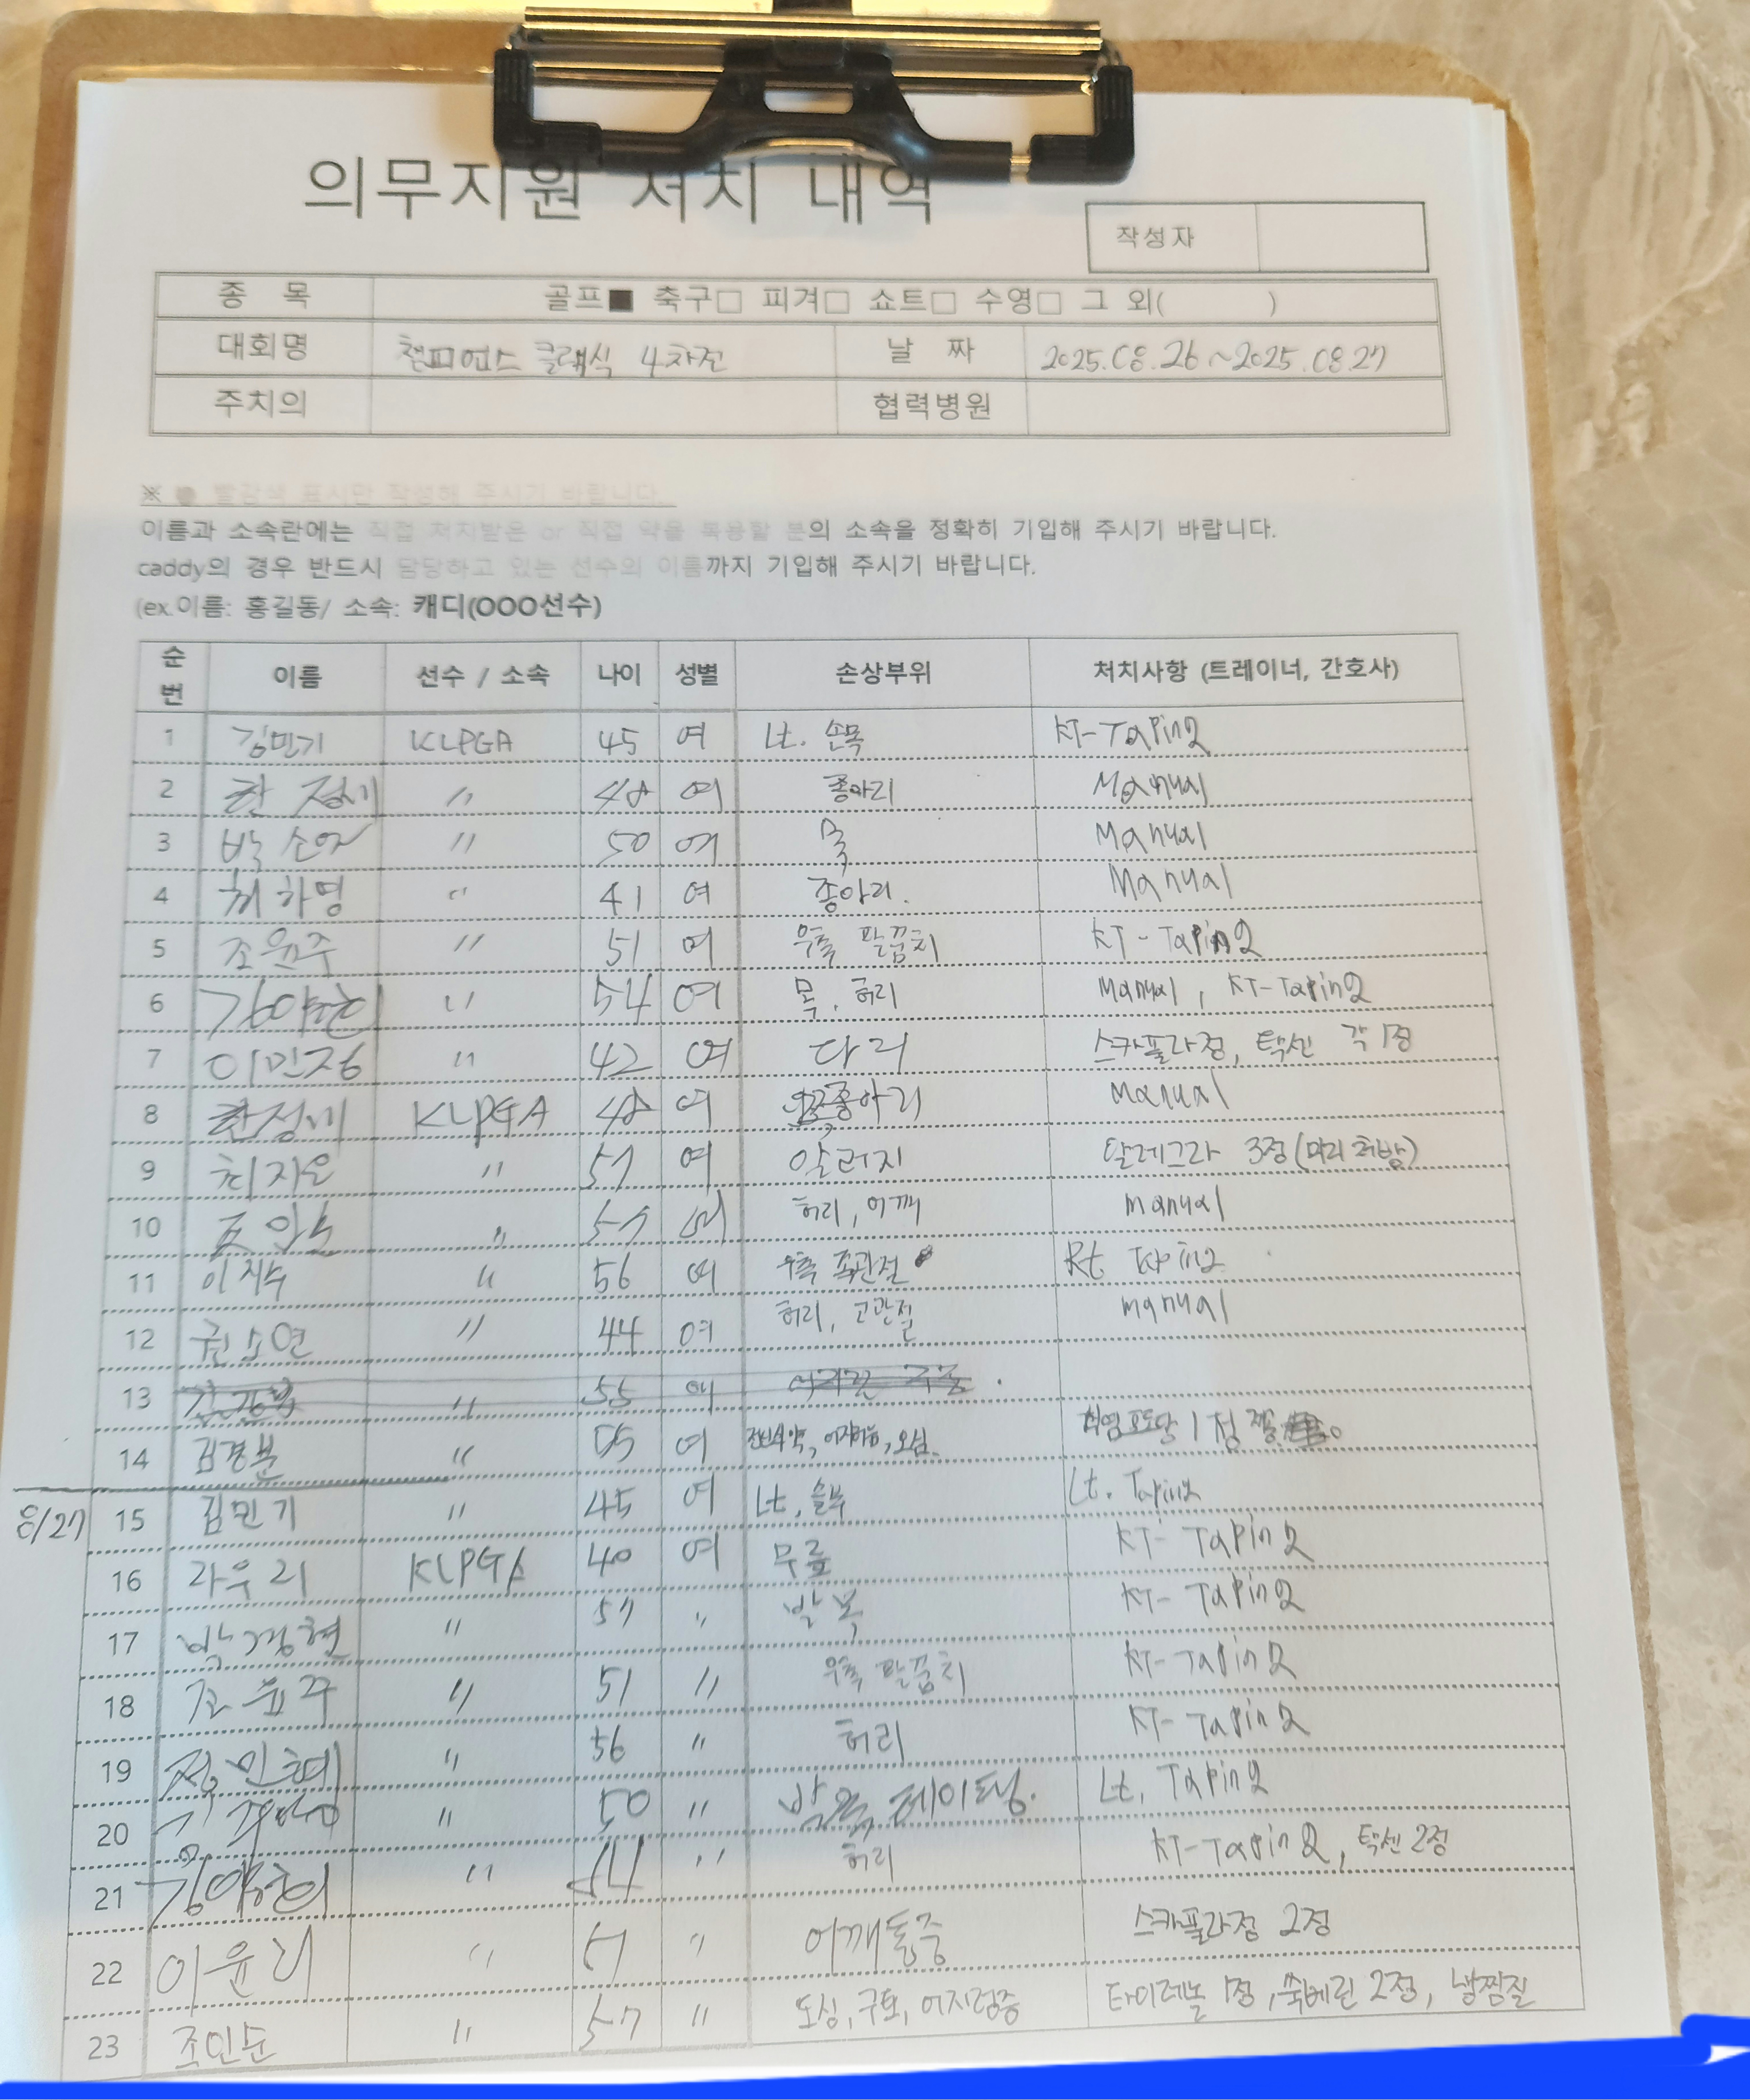 의무지원 처치 내역
작성자
종 목 골프■ 축구□ 피겨□ 쇼트□ 수영□ 그 외( )
대회명 챔피언스 클래식 4차전 날 짜 2025.08.26~2025.08.27
주치의 협력병원
※ ● 빨간색 표시만 작성해 주시기 바랍니다.
이름과 소속란에는 직접 처치받은 or 직접 약을 복용할 분의 소속을 정확히 기입해 주시기 바랍니다.
caddy의 경우 반드시 담당하고 있는 선수의 이름까지 기입해 주시기 바랍니다.
(ex.이름: 홍길동/ 소속: 캐디(OOO선수)
순번 이름 선수 / 소속 나이 성별 손상부위 처치사항 (트레이너, 간호사)
1 김민기 KLPGA 45 여 Lt. 손목 KT-Taping
2 〃 48 여 종아리 Manual
3 박소연 〃 50 여 목 Manual
4 최하영 〃 41 여 종아리. Manual
5 조윤주 〃 51 여 우측 팔꿈치 KT-Taping
6 〃 54 여 목, 허리 Manual, KT-Taping
7 이민정 〃 42 여 다리 스카풀라정, 탁센 각 1정
8 KLPGA 48 여 종아리 Manual
9 최지은 〃 57 여 알러지 알레그라 3정(미리처방)
10 〃 57 여 허리, 어깨 manual
11 이지수 〃 56 여 우측 족관절 Rt Taping
12 권소연 〃 44 여 허리, 고관절 manual
13 〃 55 여
14 김경분 〃 55 여 오심 1정
8/27 15 김민기 〃 45 여 Lt. Lt. Taping
16 라우리 KLPGA 40 여 무릎 KT-Taping
17 박경현 〃 57 〃 발목 KT-Taping
18 조윤주 〃 51 〃 우측 팔꿈치 KT-Taping
19 〃 56 〃 허리 KT-Taping
20 〃 50 〃 발목 테이핑. Lt. Taping
21 〃 54 〃 허리 KT-Taping, 탁센 2정
22 이윤리 〃 51 〃 어깨통증 스카풀라정 2정
23 조인순 〃 57 〃 구토, 어지럼증 타이레놀 1정, 2정, 냉찜질